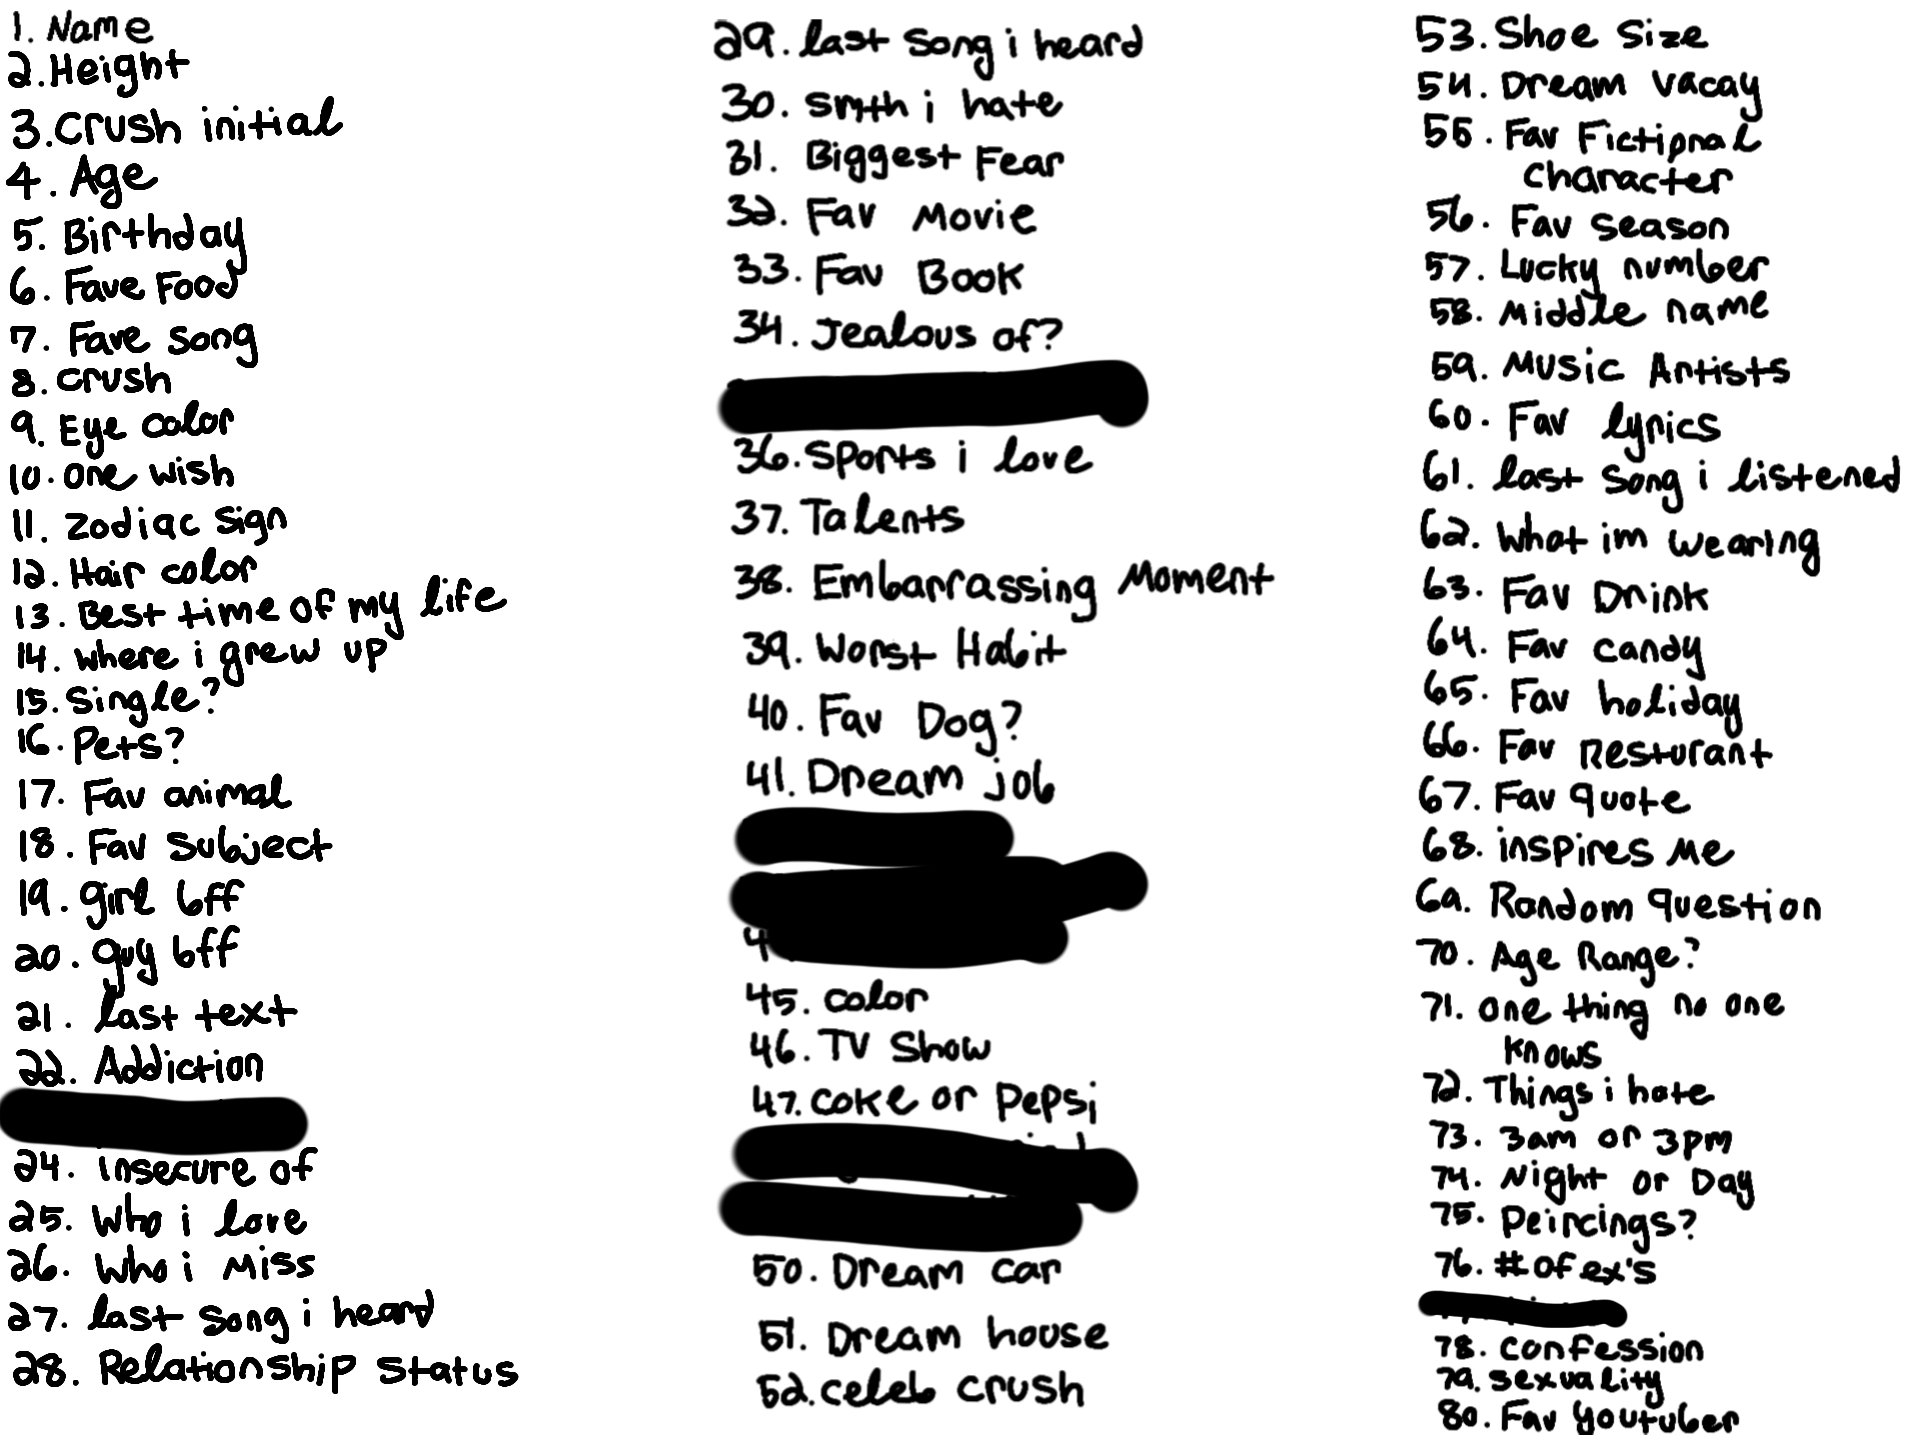 1. Name
2. Height
3. Crush initial
4. Age
5. Birthday
6. Fave Food
7. Fave song
8. crush
9. Eye color
10. one wish
11. zodiac sign
12. Hair color
13. Best time of my life
14. where i grew up
15. single?
16. Pets?
17. Fav animal
18. Fav subject
19. girl bff
20. guy bff
21. last text
22. Addiction
24. insecure of
25. Who i love
26. Who i Miss
27. last song i heard
28. Relationship status
29. last song i heard
30. smth i hate
31. Biggest Fear
32. Fav Movie
33. Fav Book
34. Jealous of?
36. Sports i love
37. Talents
38. Embarrassing Moment
39. Worst Habit
40. Fav Dog?
41. Dream job
4
45. color
46. TV Show
47. Coke or Pepsi
50. Dream car
51. Dream house
52. celeb crush
53. Shoe Size
54. Dream vacay
55. Fav Fictional
character
56. Fav season
57. Lucky number
58. Middle name
59. Music Artists
60. Fav lyrics
61. last song i listened
62. What im wearing
63. Fav Drink
64. Fav candy
65. Fav holiday
66. Fav Resturant
67. Fav quote
68. inspires me
69. Random question
70. Age Range?
71. one thing no one
knows
72. Things i hate
73. 3am or 3pm
74. Night or Day
75. Peircings?
76. # of ex's
78. confession
79. sexuality
80. Fav youtuber